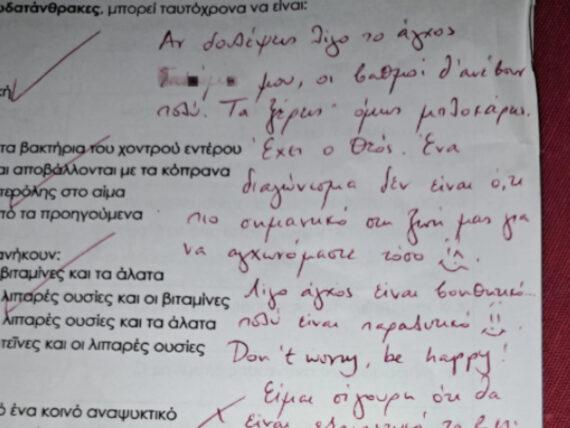 οδατάνθρακες, μπορεί ταυτόχρονα να είναι:
Αν δουλέψεις λίγο το άγχος
μου, οι βαθμοί θ'ανέβουν
κή
πολύ. Τα ξέρεις όμως μπλοκάρεις.
τα βακτήρια του χοντρού εντέρου
Έχει ο Θεός. Ένα
αι αποβάλλονται με τα κόπρανα
διαγώνισμα δεν είναι ό,τι
τερόλης στο αίμα
πό τα προηγούμενα
πιο σημαντικό στη ζωή μας για
να αγχωνόμαστε τόσο
ανήκουν:
βιταμίνες και τα άλατα
λιπαρές ουσίες και οι βιταμίνες
λίγο άγχος είναι βοηθητικό...
λιπαρές ουσίες και τα άλατα
πολύ είναι παραλυτικό
τεΐνες και οι λιπαρές ουσίες
Don't worry, be happy!
Είμαι σίγουρη ότι θα
ό ένα κοινό αναψυκτικό
είναι